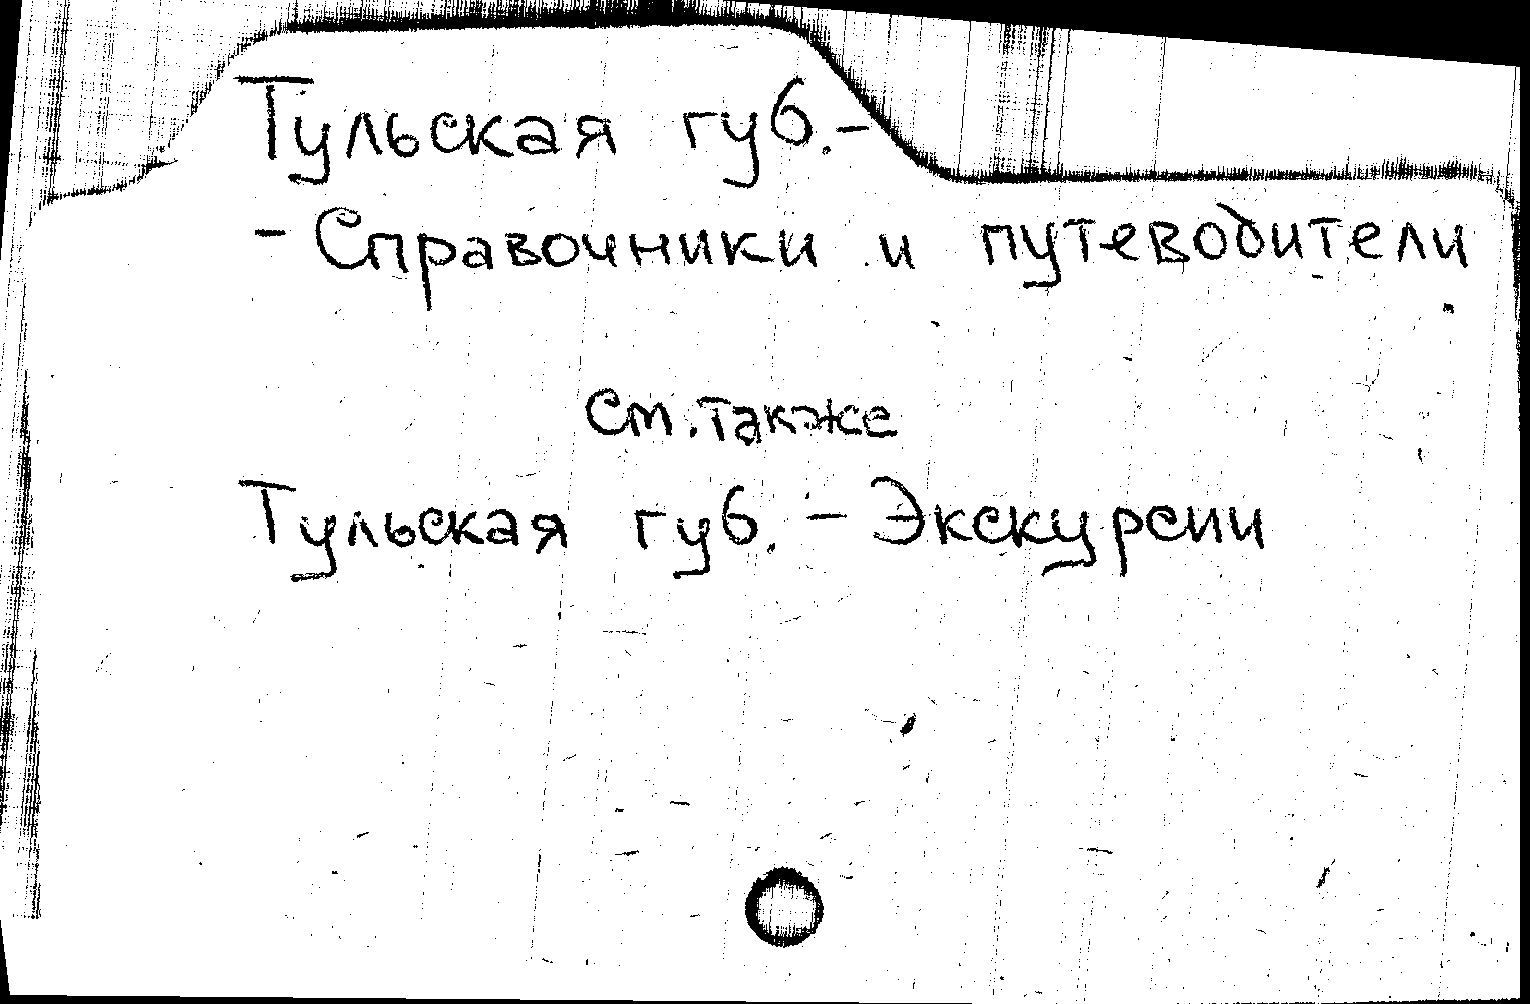 Тульская губ.-
- Справочники и путеводители
См. также
Тульская губ. - Экскурсии